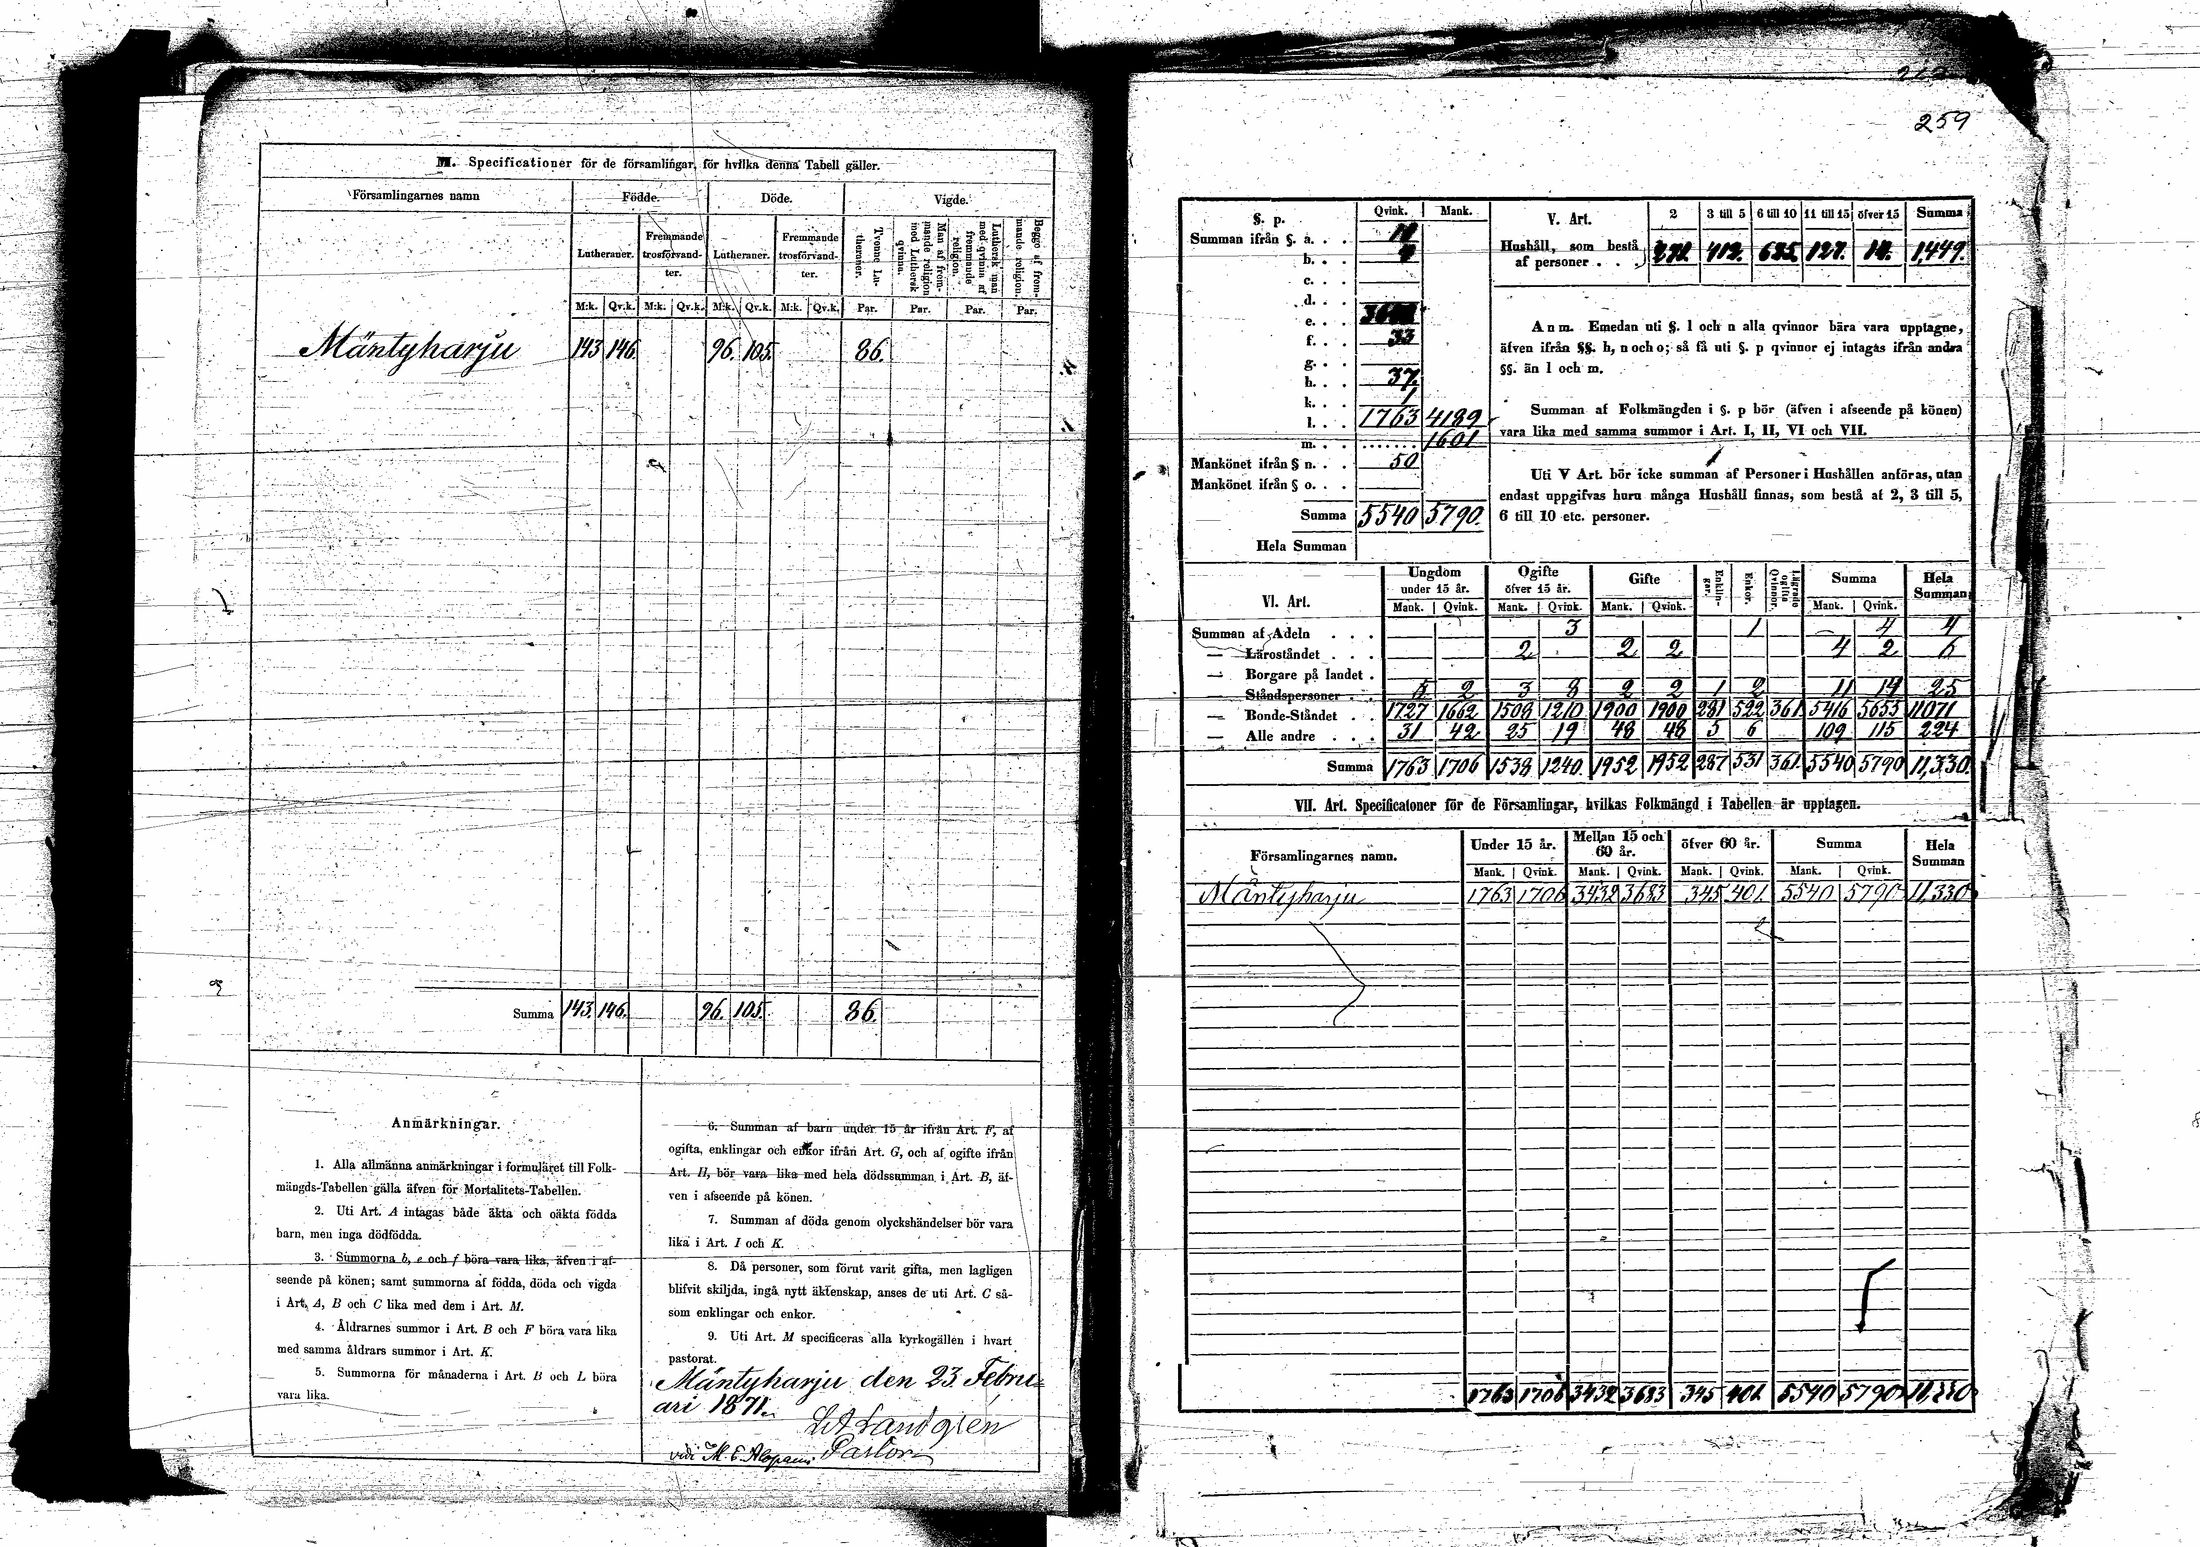 M. Specificationer för de församlingar, för hvilka denna Tabell gäller.
Församlingarnes namn Födde. Döde. Vigde.
Lutheraner. Fremmande trosförvandter. Lutheraner. Fremmande trosförvandter. Tvenne Lutheraner. Man af fremmande religion mod Luthersk qvinna. Luthersk man med qvinna af fremmande religion. Begge af fremmande religion.
M:k. Qv.k. M:k. Qv.k. M:k. Qv.k. M:k. Qv.k. Par. Par. Par. Par.
Mäntyharju 143 146. 96. 105. 86.
Summa 143. 146. 96. 105. 86.
Anmärkningar.
1. Alla allmänna anmärkningar i formuläret till Folk-
mängds-Tabellen gälla äfven för Mortalitets-Tabellen.
2. Uti Art. A intagas både äkta och oäkta födda
barn, men inga dödfödda.
3. Summorna b, e och f böra vara lika, äfven i af-
seende på könen; samt summorna af födda, döda och vigda
i Art. A, B och C lika med dem i Art. M.
4. Åldrarnes summor i Art. B och F böra vara lika
med samma åldrars summor i Art. K.
5. Summorna för månaderna i Art. B och L böra
vara lika.
6. Summan af barn under 15 år ifrån Art. F, af
ogifta, enklingar och enkor ifrån Art. G, och af ogifte ifrån
Art. H, bör vara lika med hela dödssumman i Art. B, äf-
ven i afseende på könen.
7. Summan af döda genom olyckshändelser bör vara
lika i Art. I och K.
8. Då personer, som förut varit gifta, men lagligen
blifvit skiljda, ingå nytt äktenskap, anses de uti Art. C så-
som enklingar och enkor.
9. Uti Art. M specificeras alla kyrkogällen i hvart
pastorat.
Mäntyharju den 23 Febru-
ari 1871.
Landgrén
vidi Pastor
259
§. p. Qvink. Mank.
Summan ifrån §. a. . .
b. . .
c. . .
d. . .
e. . .
f. . . 33
g. . .
h. . . 37.
k. . . 1
l. . . 1763 4189
m. . . 1601
Mankönet ifrån § n. . . 50
Mankönet ifrån § o. . .
Summa 5540 5790.
Hela Summan
V. Art. 2 3 till 5 6 till 10 11 till 15 öfver 15 Summa
Hushåll, som bestå
af personer . . . 412. 127. 1,449.
Anm. Emedan uti §. l och n alla qvinnor bära vara upptagne,
äfven ifrån §§. h, n och o; så få uti §. p qvinnor ej intagas ifrån andra
§§. än l och m.
Summan af Folkmängden i §. p bör (äfven i afseende på könen)
vara lika med samma summor i Art. I, II, VI och VII.
Uti V Art. bör icke summan af Personer i Hushållen anföras, utan
endast uppgifvas huru många Hushåll finnas, som bestå af 2, 3 till 5,
6 till 10 etc. personer.
VI. Art. Ungdom under 15 år. Ogifte öfver 15 år. Gifte Enklingar. Enkor. Lägrade ogifta Qvinnor. Summa Hela Summan
Mank. Qvink. Mank. Qvink. Mank. Qvink. Mank. Qvink.
Summan af Adeln . . . 3 1 4 4
— Läroståndet . . . 2 2 2 4 2 6
— Borgare på landet .
— Ståndspersoner . . 5 2 3 8 2 2 1 2 11 14 25
— Bonde-Ståndet . . 1727 1662 1508 1210 1900 1900 281 522 361 5416 5655 11071
— Alle andre . . . 31 42 25 19 48 48 5 6 109 115 224
Summa 1763 1706 1538 1240. 1952 1952 287 531 361. 5540 5790 11,330.
VII. Art. Specificatoner för de Församlingar, hvilkas Folkmängd i Tabellen är upptagen.
Församlingarnes namn. Under 15 år. Mellan 15 och 60 år. öfver 60 år. Summa Hela Summan
Mank. Qvink. Mank. Qvink. Mank. Qvink. Mank. Qvink.
Mäntyharju 1763 1706 3432 3683 345 401. 5540 5790 11,330
1763 1706 3432 3683 345 401. 5540 5790 11,330